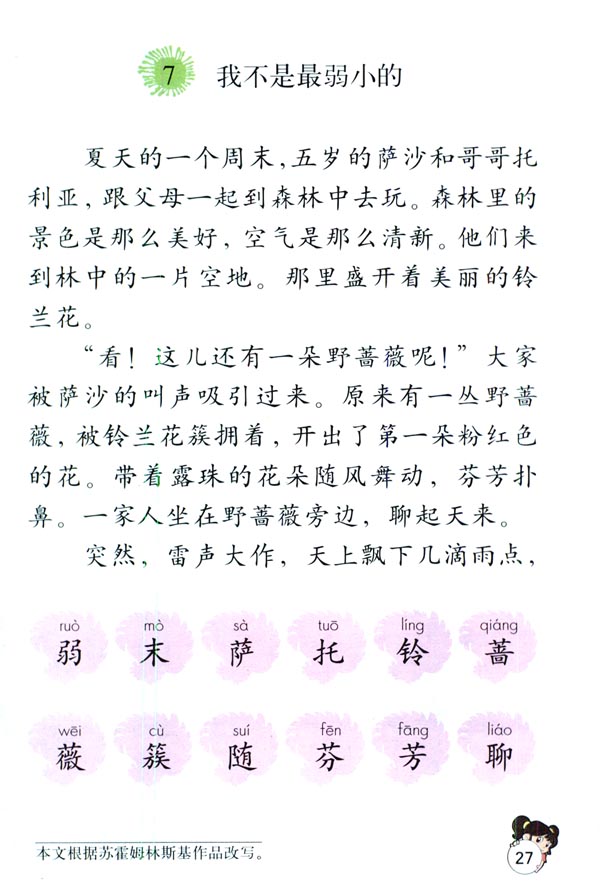 7 我不是最弱小的
夏天的一个周末，五岁的萨沙和哥哥托
利亚，跟父母一起到森林中去玩。森林里的
景色是那么美好，空气是那么清新。他们来
到林中的一片空地。那里盛开着美丽的铃
兰花。
“看！这儿还有一朵野蔷薇呢！”大家
被萨沙的叫声吸引过来。原来有一丛野蔷
薇，被铃兰花簇拥着，开出了第一朵粉红色
的花。带着露珠的花朵随风舞动，芬芳扑
鼻。一家人坐在野蔷薇旁边，聊起天来。
突然，雷声大作，天上飘下几滴雨点，
ruò mò sà tuō líng qiáng
弱 末 萨 托 铃 蔷
wēi cù suí fēn fāng liáo
薇 簇 随 芬 芳 聊
本文根据苏霍姆林斯基作品改写。
27